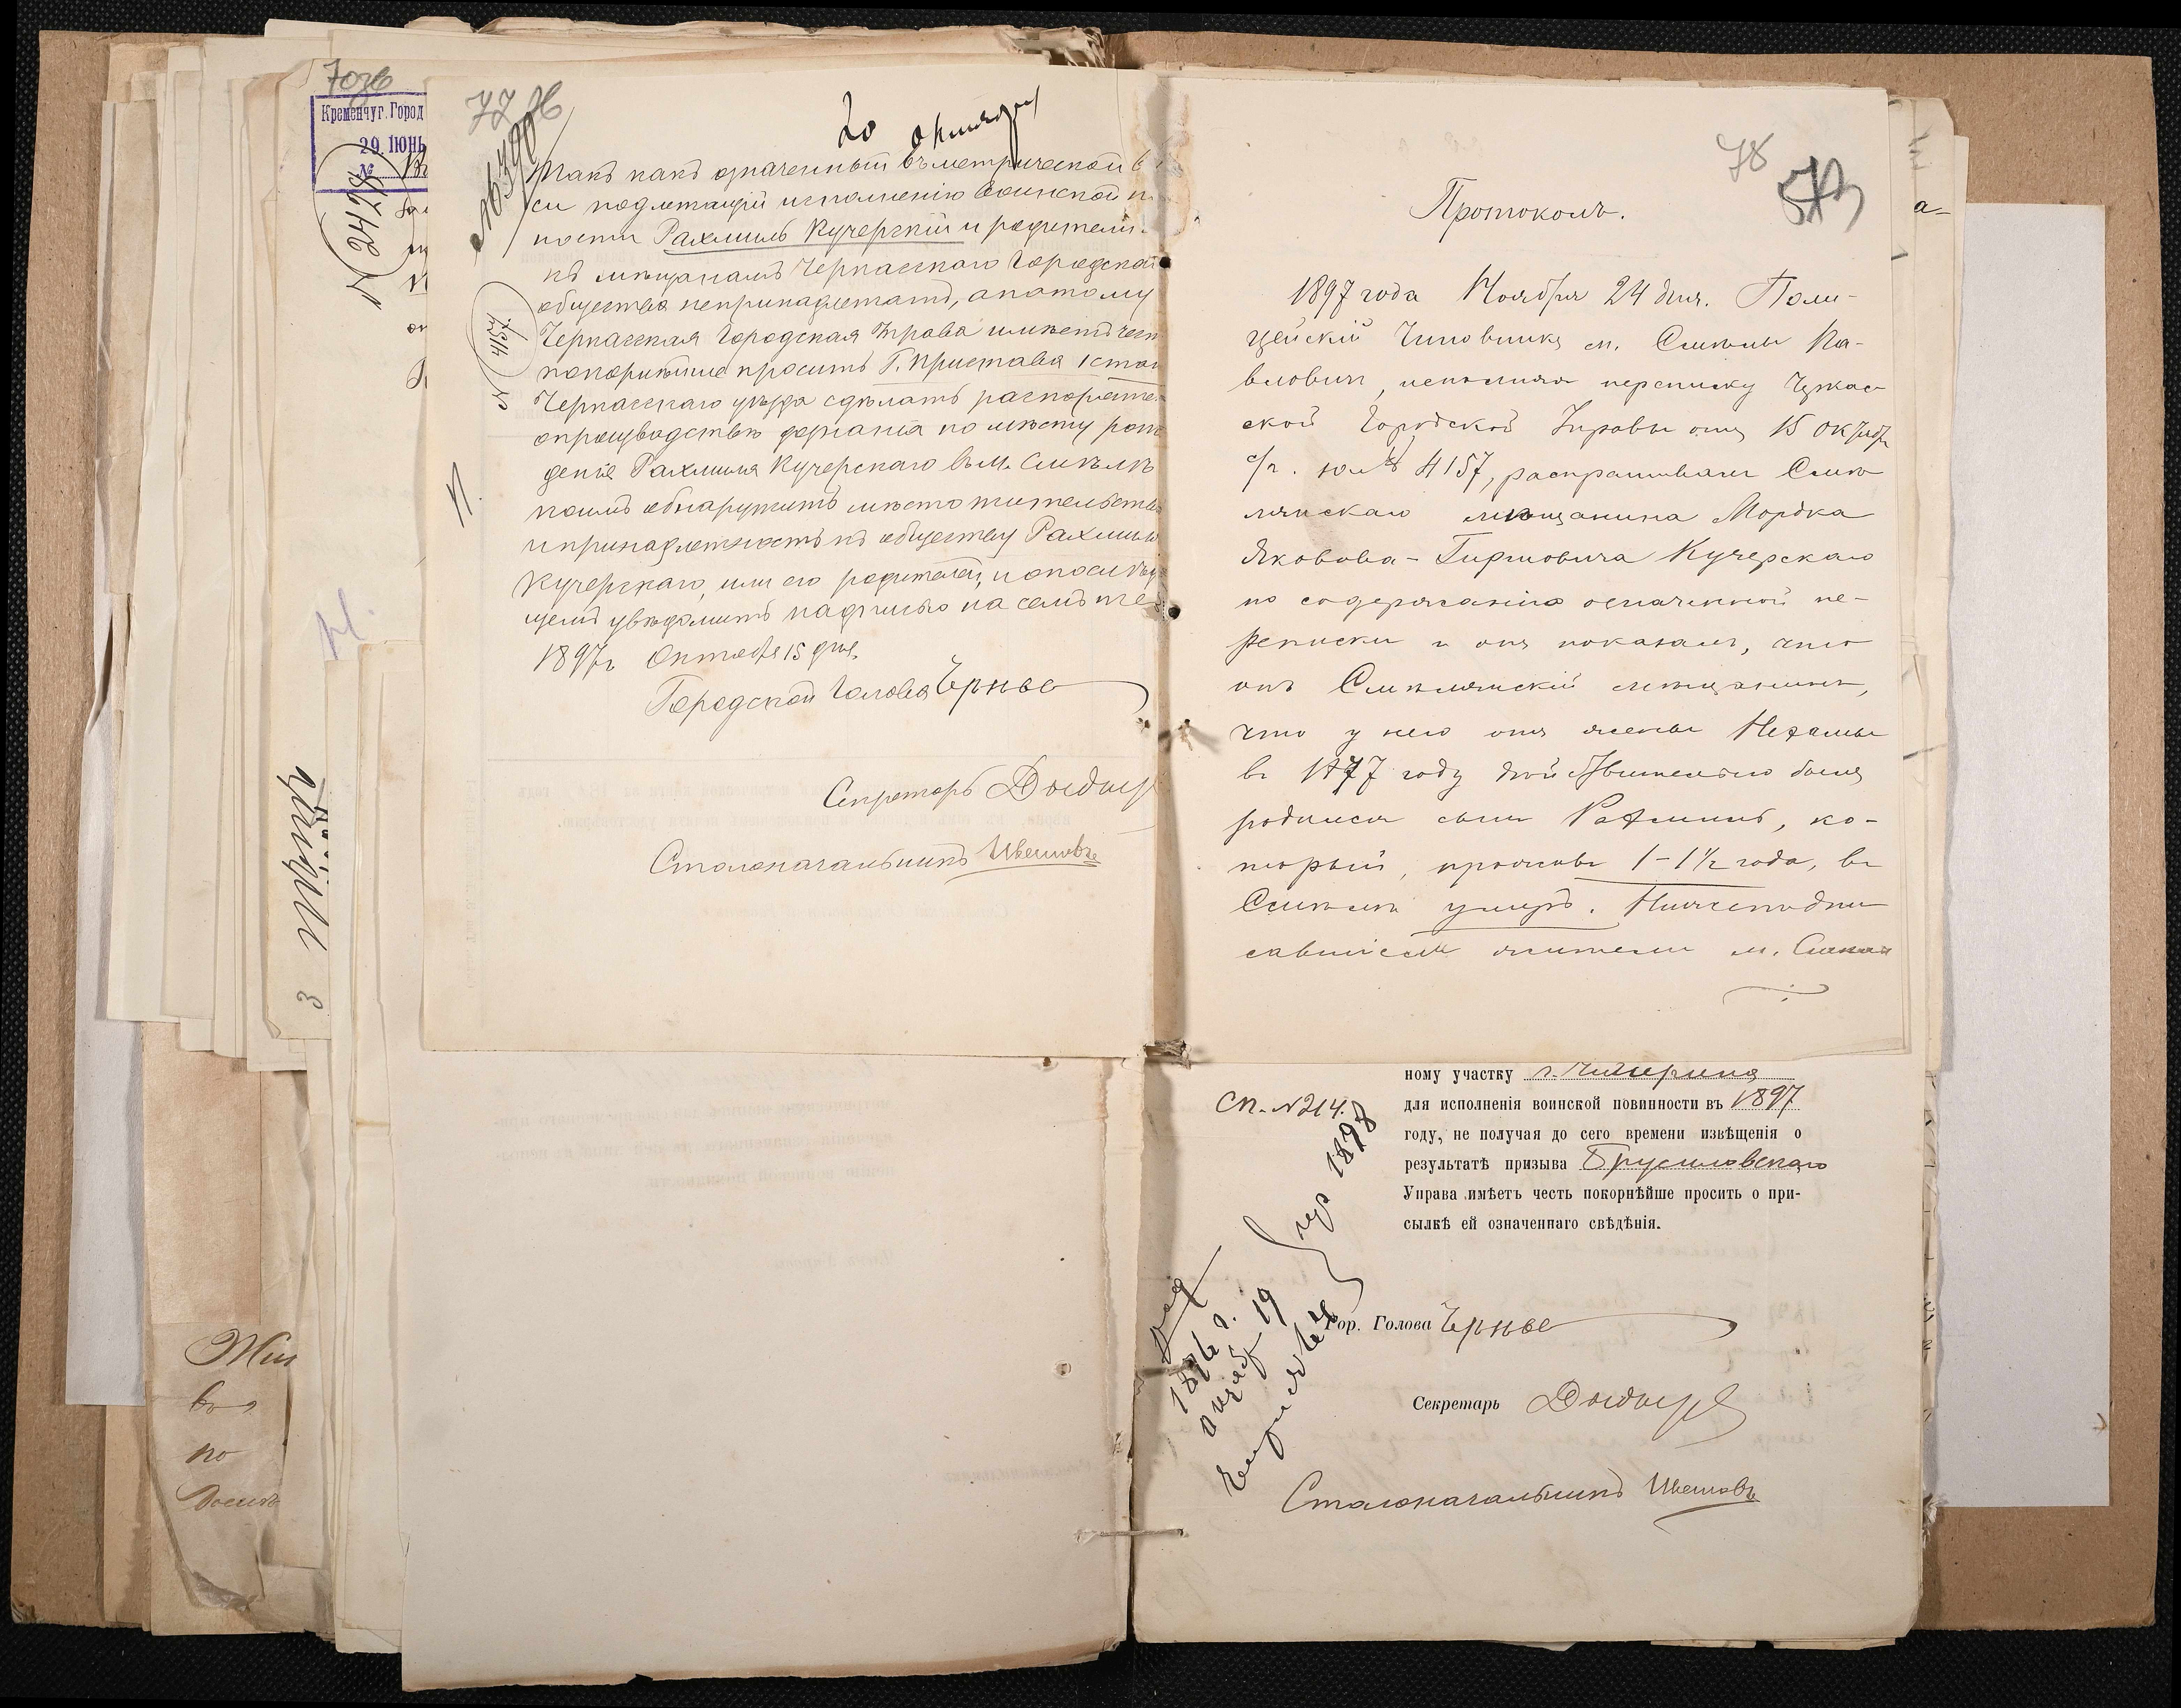 70об
Кременчуг. Город
29. ІЮНЬ
№
77об
20 октября
Такъ какъ означенный въ метрической в
си подлежащій исполненію воинской п
ности Рахмиль Кучерскій и родители
къ мѣщанамъ Черкасскаго Городска
общества непринадлежатъ, апотому
Черкасская Городская Управа имѣетъ чест
покорнѣйше просить Г. Пристава 1 стан
Черкасскаго уѣзда сдѣлать распоряже
опроизводствѣ дознанія по мѣсту рож
денія Рахмиля Кучерскаго въ м. Смѣлѣ
коимъ обнаружить мѣсто жительства
и принадлежность къ обществу Рахмиля
Кучерскаго, или его родителей, и опослѣдую
щемъ увѣдомить надписью на семъ же
1897г. Октября 15 дня
Городской Голова Чернов
Секретарь
Столоначальникъ
№ 4157
78
Протоколъ.
1897 года Ноября 24 дня. Поли-
цейскій Чиновникъ м. Смѣлы Па-
вловичъ, исполняя переписку Черкас-
ской Городской Управы отъ 15 Октября
с/г. за № 4157, распрашивалъ Смѣ
лянскаго мѣщанина Мордка
Яковова-Гиршовича Кучерскаго
по содержанію означенной пе-
реписки и онъ показалъ, что
онъ Смѣлянскій мѣщанинъ,
что у него отъ жены Нехамы
въ 1877 году дѣйствительно былъ
родился сынъ Рахмиль, ко-
торый, проживъ 1-1½ года, въ
Смѣлѣ умеръ. Нижеподпи
савшіеся жители м. Смѣлы
а-
ному участку г. Чигирина
для исполненія воинской повинности въ 1897
году, не получая до сего времени извѣщенія о
результатѣ призыва Брусиловскаго
Управа имѣетъ честь покорнѣйше просить о при-
сылкѣ ей означеннаго свѣдѣнія.
Сп. № 214.
1898
1876 г.
19
Гор. Голова Чернов
Секретарь
Столоначальникъ